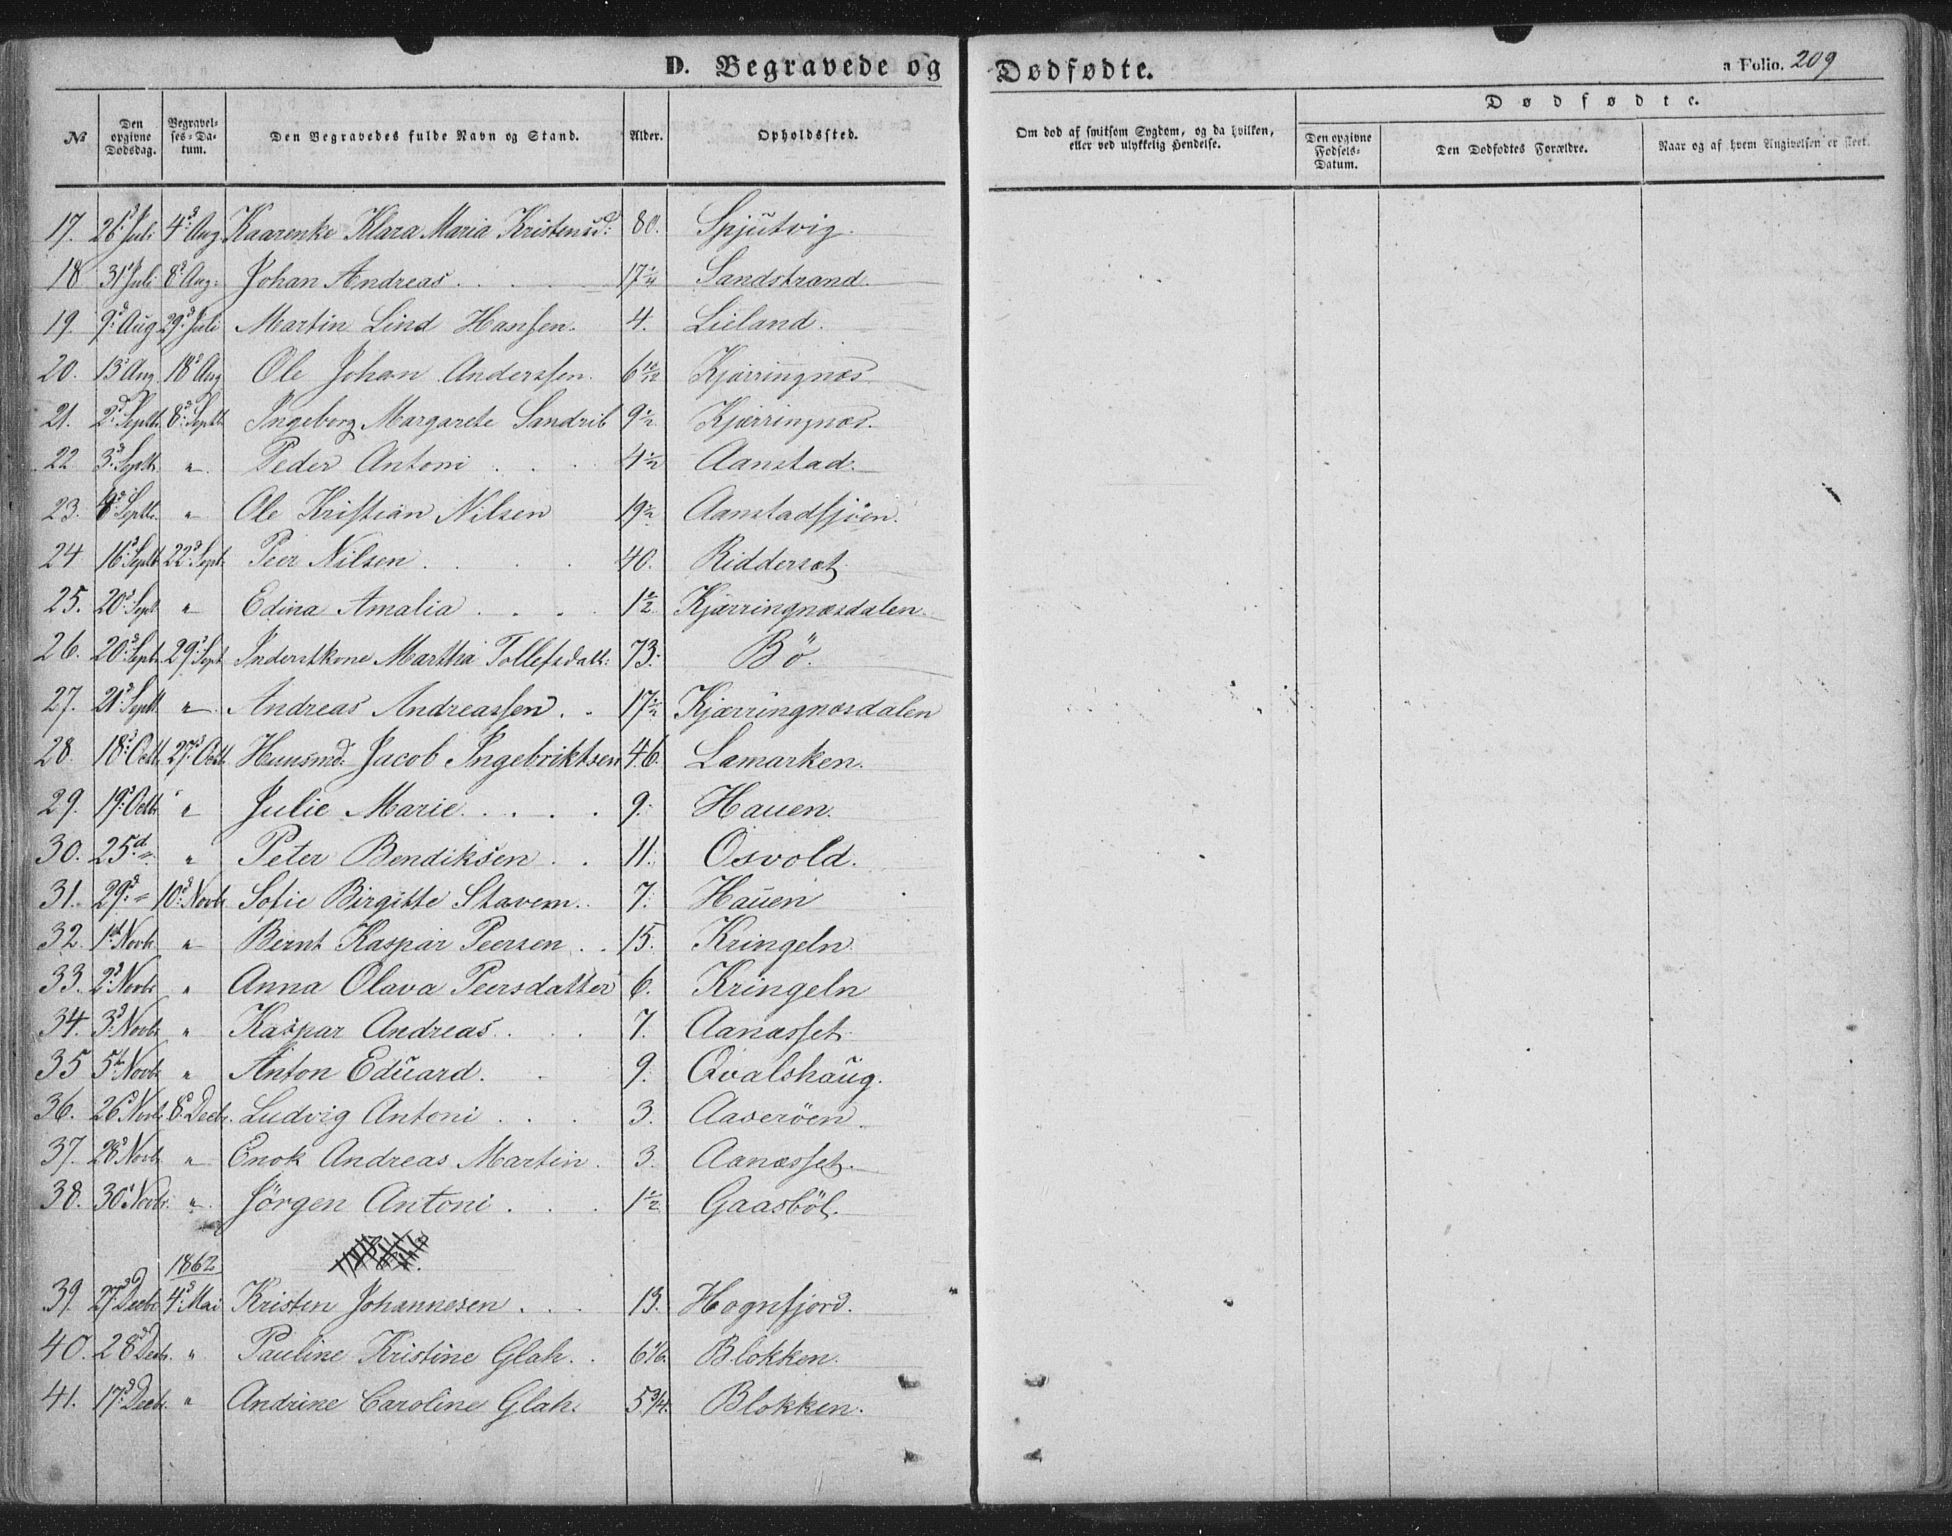 D. Begravede og Dødfødte. a Folio. 209
№ Den opgivne Dødsdag. Begravelses-Datum. Den Begravedes fulde Navn og Stand. Alder. Opholdssted. Om død af smitsom Sygdom, og da hvilken, eller ved ulykkelig Hendelse. Dødfødte. Den opgivne Fødsels-Datum. Den Dødfødtes Forældre. Naar og af hvem Angivelsen er skeet.
17. 26d Juli 4d: Aug Kaarenke Klara Maria Kristensd: 80. Spjutvig.
18 31 Juli 8d Aug: Johan Andreas . . . 17 Sandstrand.
19. 9d: Aug 29d: Juli Martin Lind Hansen. 4. Lieland.
20. 13 Aug 18d Aug Ole Johan Anderssen. 6 10/12 Kjørringnæs
21. 2d Septb. 8d: Septb Ingeborg Margarete Sandvib 9½ Kjærringnæs.
22 3d Septb. " Peder Antoni . . . 4½ Aanstad.
23. 8d Septb. " Ole Kristian Nilsen 19½ Aanstadsjöen.
24 16d Septb. 22d: Sept. Peer Nilsen . . . 40. Riddersæt.
25. 20d: Sept " Edina Amalia . . . 1½ Kjærringnæsdalen.
26. 20d: Septb. 29d: Sept Inderstkone Martha Tollefsdatt: 73. Bö.
27. 21d Septb. " Andreas Andreassen . . 17½ Kjærringnæsdalen
28. 18d: Octb. 27d: Octb Huusmd: Jacob Ingebriktsen 46. Lamarken.
29. 19d: Octb " Julie Marie . . . . 9. Hauen.
30. 25d " " Peter Bendiksen . . 11. Osvold.
31. 29d: " 10d: Novb. Sofie Birgitte Stavem. . 7. Hauen
32. 1st Novb. " Bernt Kaspar Peersen . . 15. Kringeln
33. 2d Novb " Anna Olava Peersdatter 6. Kringeln
34. 3d Novb. " Kaspar Andreas . . . 7. Aanæsset.
35 5t Novb. " Anton Eduard. . 9. Qvalshaug.
36. 26d Novb. 8d. Decb. Ludvig Antoni . . . 3. Aaseröen.
37. 28d Novb. " Enok Andreas Martin . 3. Aanæsset.
38. 30d Novb. " Jörgen Antoni . . . 1½ Gaasböl.
1862
39. 27d Decb. 4d: Mai Kristen Johannesen . . . 13. Hognfjord.
40. 28d Decb. " Pauline Kristine Glah. . 6 1/6. Blokken.
41. 17d: Decb. " Andrine Caroline Glah. 5 3/4. Blokken.